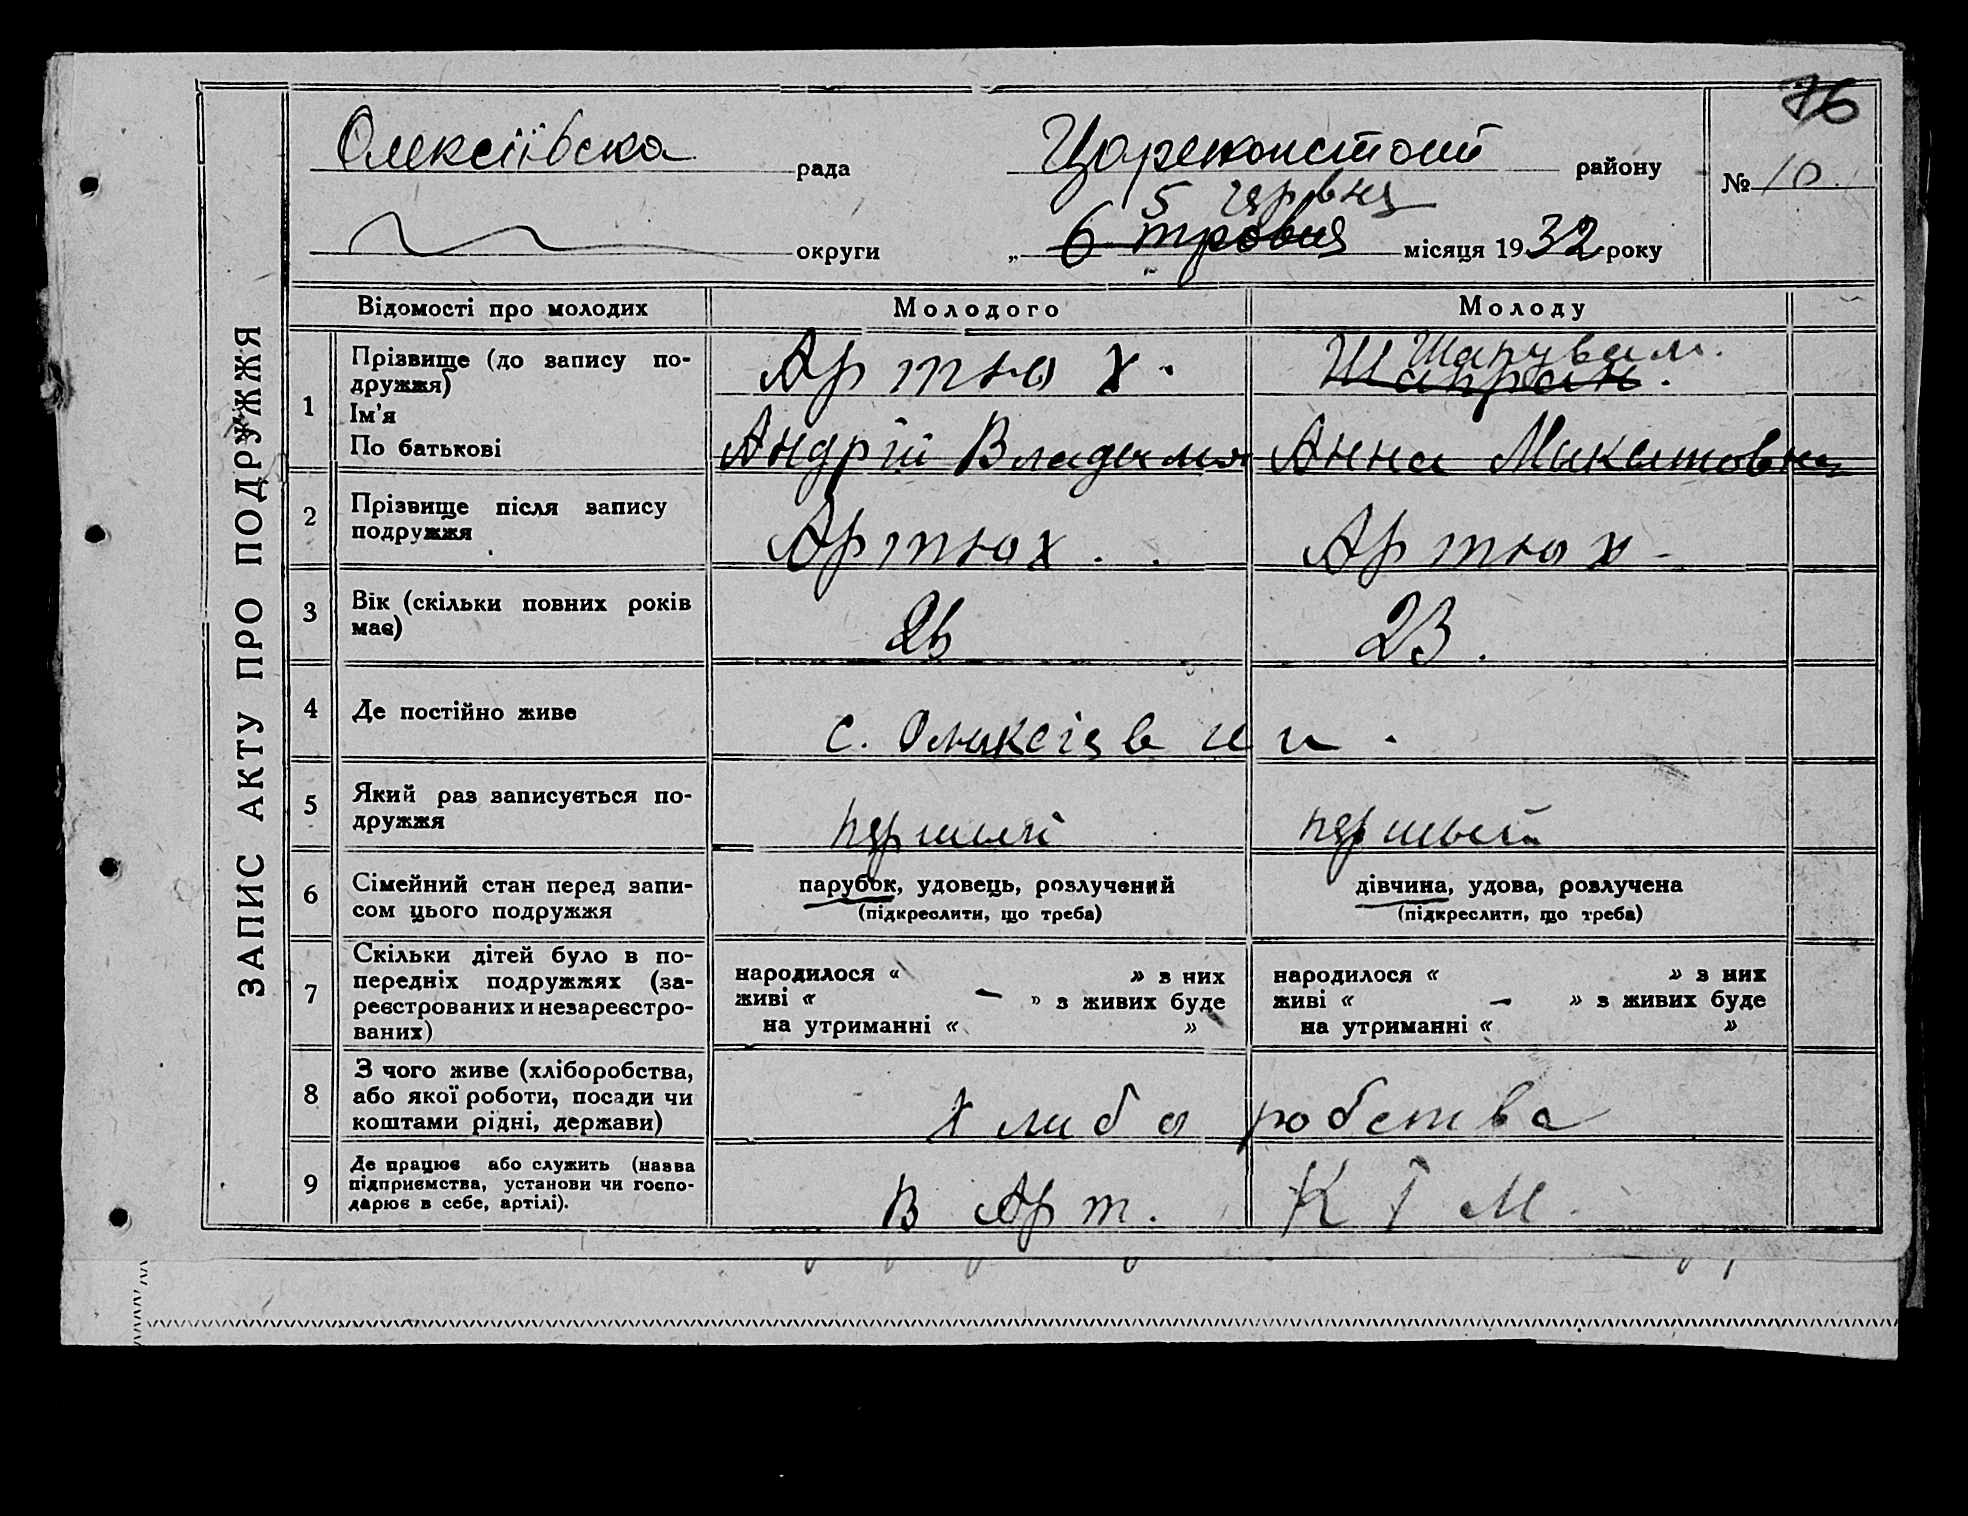 76
Олексіївска рада Цареконстонт району № 10
5 червня
округи „ 6 " травня місяця 1932 року
ЗАПИС АКТУ ПРО ПОДРУЖЖЯ
Відомості про молодих Молодого Молоду
1 Прізвище (до запису по-
дружжя) Артюх. Шапран.
Ім'я
По батькові Андрій Анна
2 Прізвище після запису
подружжя Артюх. Артюх
3 Вік (скільки повних років
має) 26 23.
4 Де постійно живе с.
5 Який раз записується по-
дружжя
6 Сімейний стан перед запи-
сом цього подружжя
парубок, удовець, розлучений дівчина, удова, розлучена
(підкреслити, що треба) (підкреслити, що треба)
7 Скільки дітей було в по-
передніх подружжях (за-
реєстрованих и незареєстро-
ваних)
народилося « » з них народилося « » з них
живі « — » з живих буде живі « — » з живих буде
на утриманні « » на утриманні « »
8 З чого живе (хліборобства,
або якої роботи, посади чи
коштами рідні, держави) хлибо робства
9 Де працює або служить (назва
підприємства, установи чи госпо-
дарює в себе, артілі). В Арт. К І М.